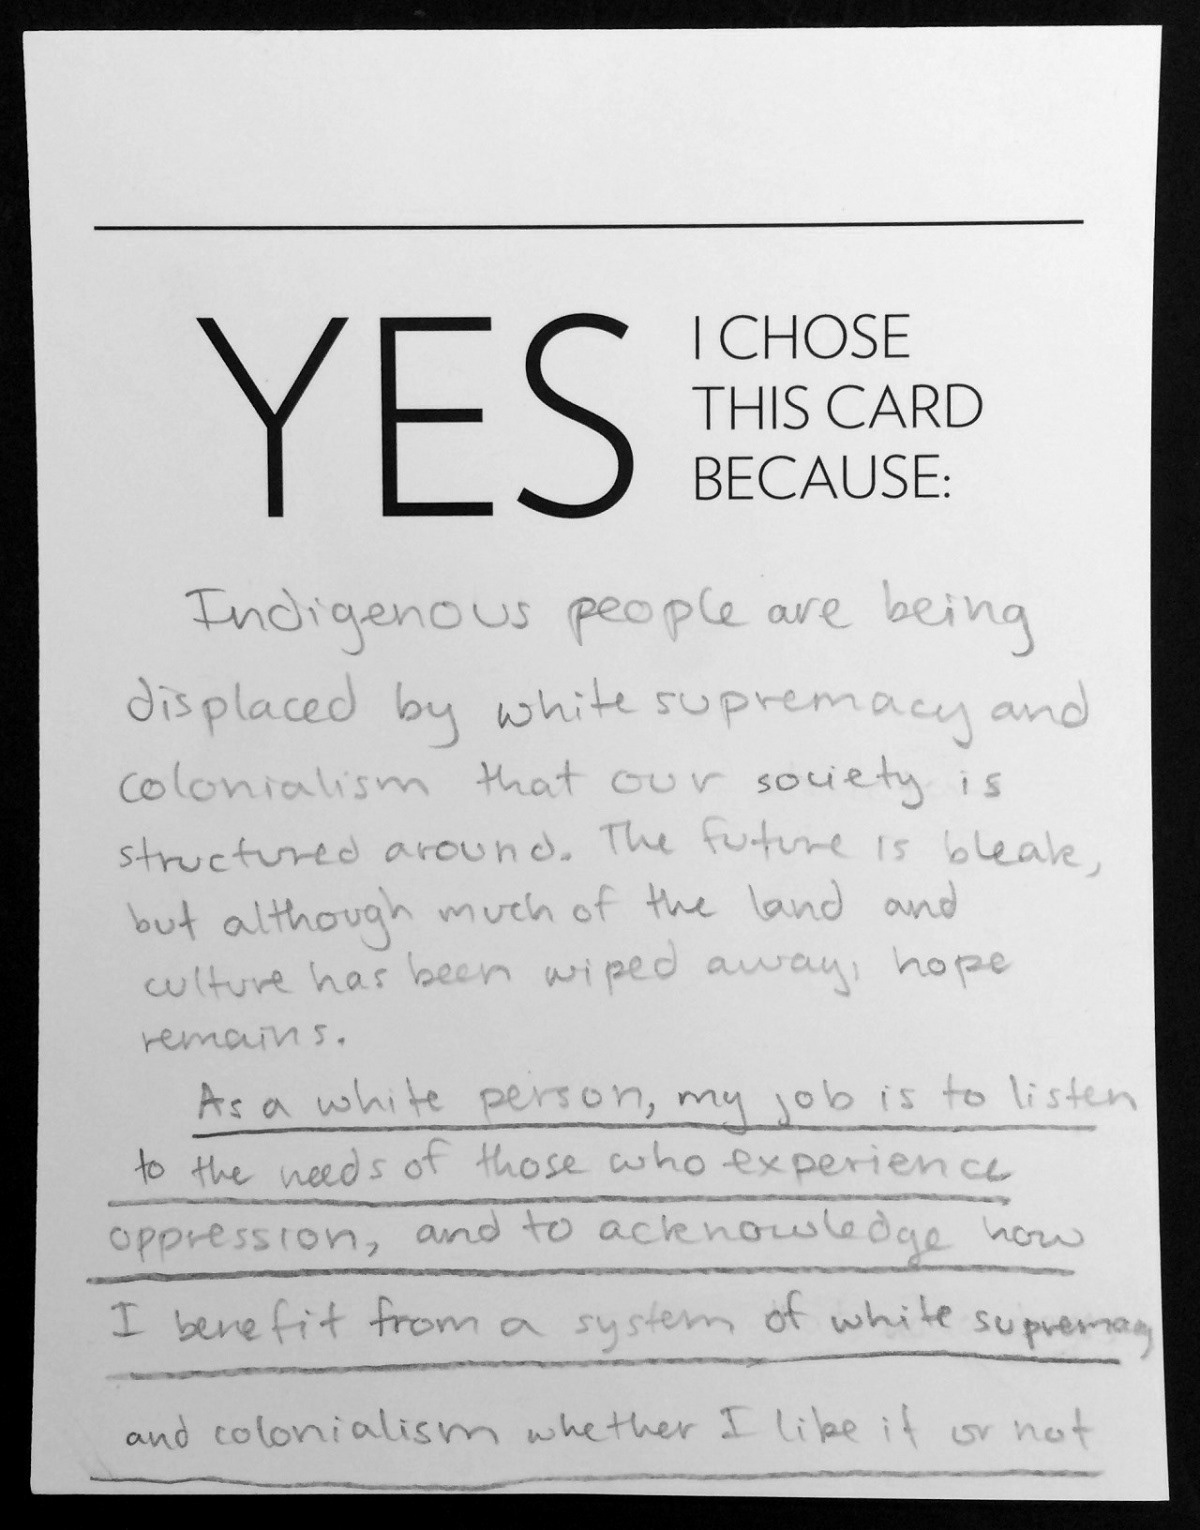 YES
I CHOSE
THIS CARD
BECAUSE:
Indigenous people are being
displaced by white supremacy and
colonialism that our society is
structured around. The future is bleak,
but although much of the land and
culture has been wiped away, hope
remains.
As a white person, my job is to listen
to the needs of those who experience
oppression, and to acknowledge how
I benefit from a system of white supremacy
and colonialism whether I like it or not